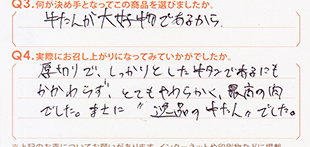 Q3.何が決め手となってこの商品を選びましたか。
牛たんが大好物であるから.
Q4.実際にお召し上がりになってみていかがでしたか。
厚切りで、しっかりとした牛タンであるにも
かかわらず、とてもやわらかく、最高の肉
でした。まさに〃逸品の牛たん〃でした。